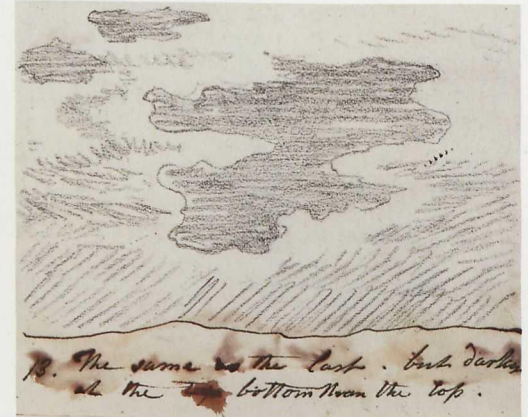 13. The same as the last. but darker
at the top bottom than the top.